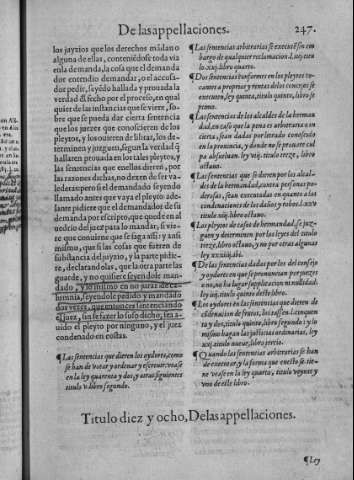 De las appellaciones. 247.
los juyzios que los derechos mādan o
alguna de ellas, conteniēdose toda via
en la demanda, la cosa que el demanda
dor entendio demandar, o el accusa-
dor pedir, seyēdo hallada y prouada la
verdad d'l fecho por el processo, en qual
quier de las instancias que se viere, so-
bre que se pueda dar cierta sentencia
que los juezes que conoscieren de los
pleytos, y los ouieren de librar, los de-
terminen y juzguen, segun la verdad q̄
hallaren prouada en los tales pleytos, y
las sentencias que en ellos dieren, por
las razones dichas, no dexen de ser va-
lederas: pero si el demandado seyendo
llamado antes que vaya el pleyto ade-
lante pidiere que el demandador de su
demanda por escripto, que quede en al
uedrio del juez para lo mandar, si vie-
re que conuiene que se haga assi: y assi
mismo, que si las cosas que fueren de
substancia del juyzio, y la parte pidie-
re, declarandolas, que la otra parte las
guarde, y no quisiere seyendole man-
dado, y lo mismo en no jurar de ca-
lumnia, seyendole pedido y mandado
dos vezes, que entonces sentenciando
el juez, sin se fazer lo suso dicho, sea a-
uido el pleyto por ninguno, y el juez
condenado en costas.
¶ Las sentencias que dieren los oydores, como se
han de votar y ordenar y escreuir: vease en
la ley quarenta y dos, y otras siguientes
titulo v. libro segundo.
¶ Las sentencias arbitrarias se executē sin em-
bargo de qualquier reclamacion.
libro quarto.
¶ Dos sentencias conformes en los pleytos to-
cantes a proprios y rentas delos concejos se
executen, ley quinta, titulo quinto, libro se-
ptimo.
¶ Las sentencias de los alcaldes de la herman
dad, en caso que la pena es arbitraria o in
cierta, sean dadas por letrado conoscido
en la prouincia, y donde no se procure cul
pa absueluan. ley titulo treze, libro
octauo.
¶ Las sentencias que se dieren por los alcal-
des de la hermandad, contra personas po-
derosas, sean executadas en quanto a las
condenaciones de los daños y robos.
titulo libro octauo.
¶ Los pleytos de casos de hermandad, se juz-
guen y determinen por las leyes del titulo
treze, libro octauo, y no por otras algunas
ley
¶ De las sentencias dadas por los del consejo
y oydores en que se pronuncian por juezes
o no, no ha lugar apelacion ni nullidad,
ley titulo quinto deste libro.
¶ Los oydores en las sentencias que dieren de
condenacion de frutos, los tassen
ta y dos, titulo quinto, libro segundo: y lo
mismo hagan las justicias ordinarias, ley
titulo nueue, libro tercio.
¶ Quando las sentencias arbitrarias se han
de executar, y la forma que en esto se tie-
ne: vease en la ley quarta, titulo veynte y
vno de este libro.
Titulo diez y ocho, De las appellaciones.
¶ Ley